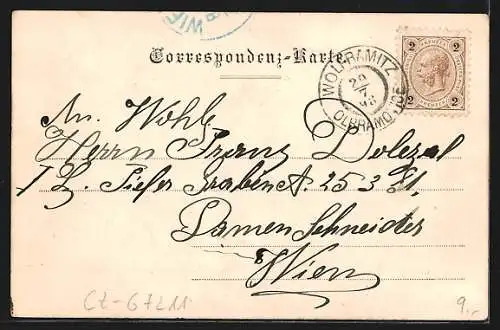 WIE
Correspondenz-Karte.
2 KREUZER 2
WOLFRAMITZ
29
7
98
OLBRAMOVICE
An. Wohlg
Herrn Franz Dolezal
Tiefer Graben A. 25 3 St,
Damen Schneider
Wien
CZ-67211
9.-